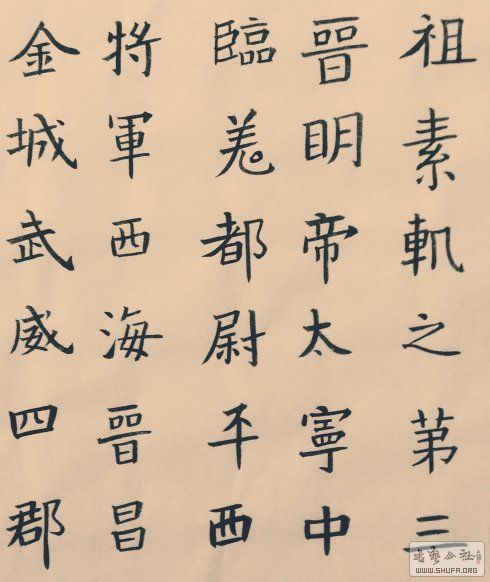 祖素軌之苐三
晉眀帝太寧中
臨羌都尉平西
將軍西海晉昌
金城武威四郡
書藝公社
WWW.SHUFA.ORG